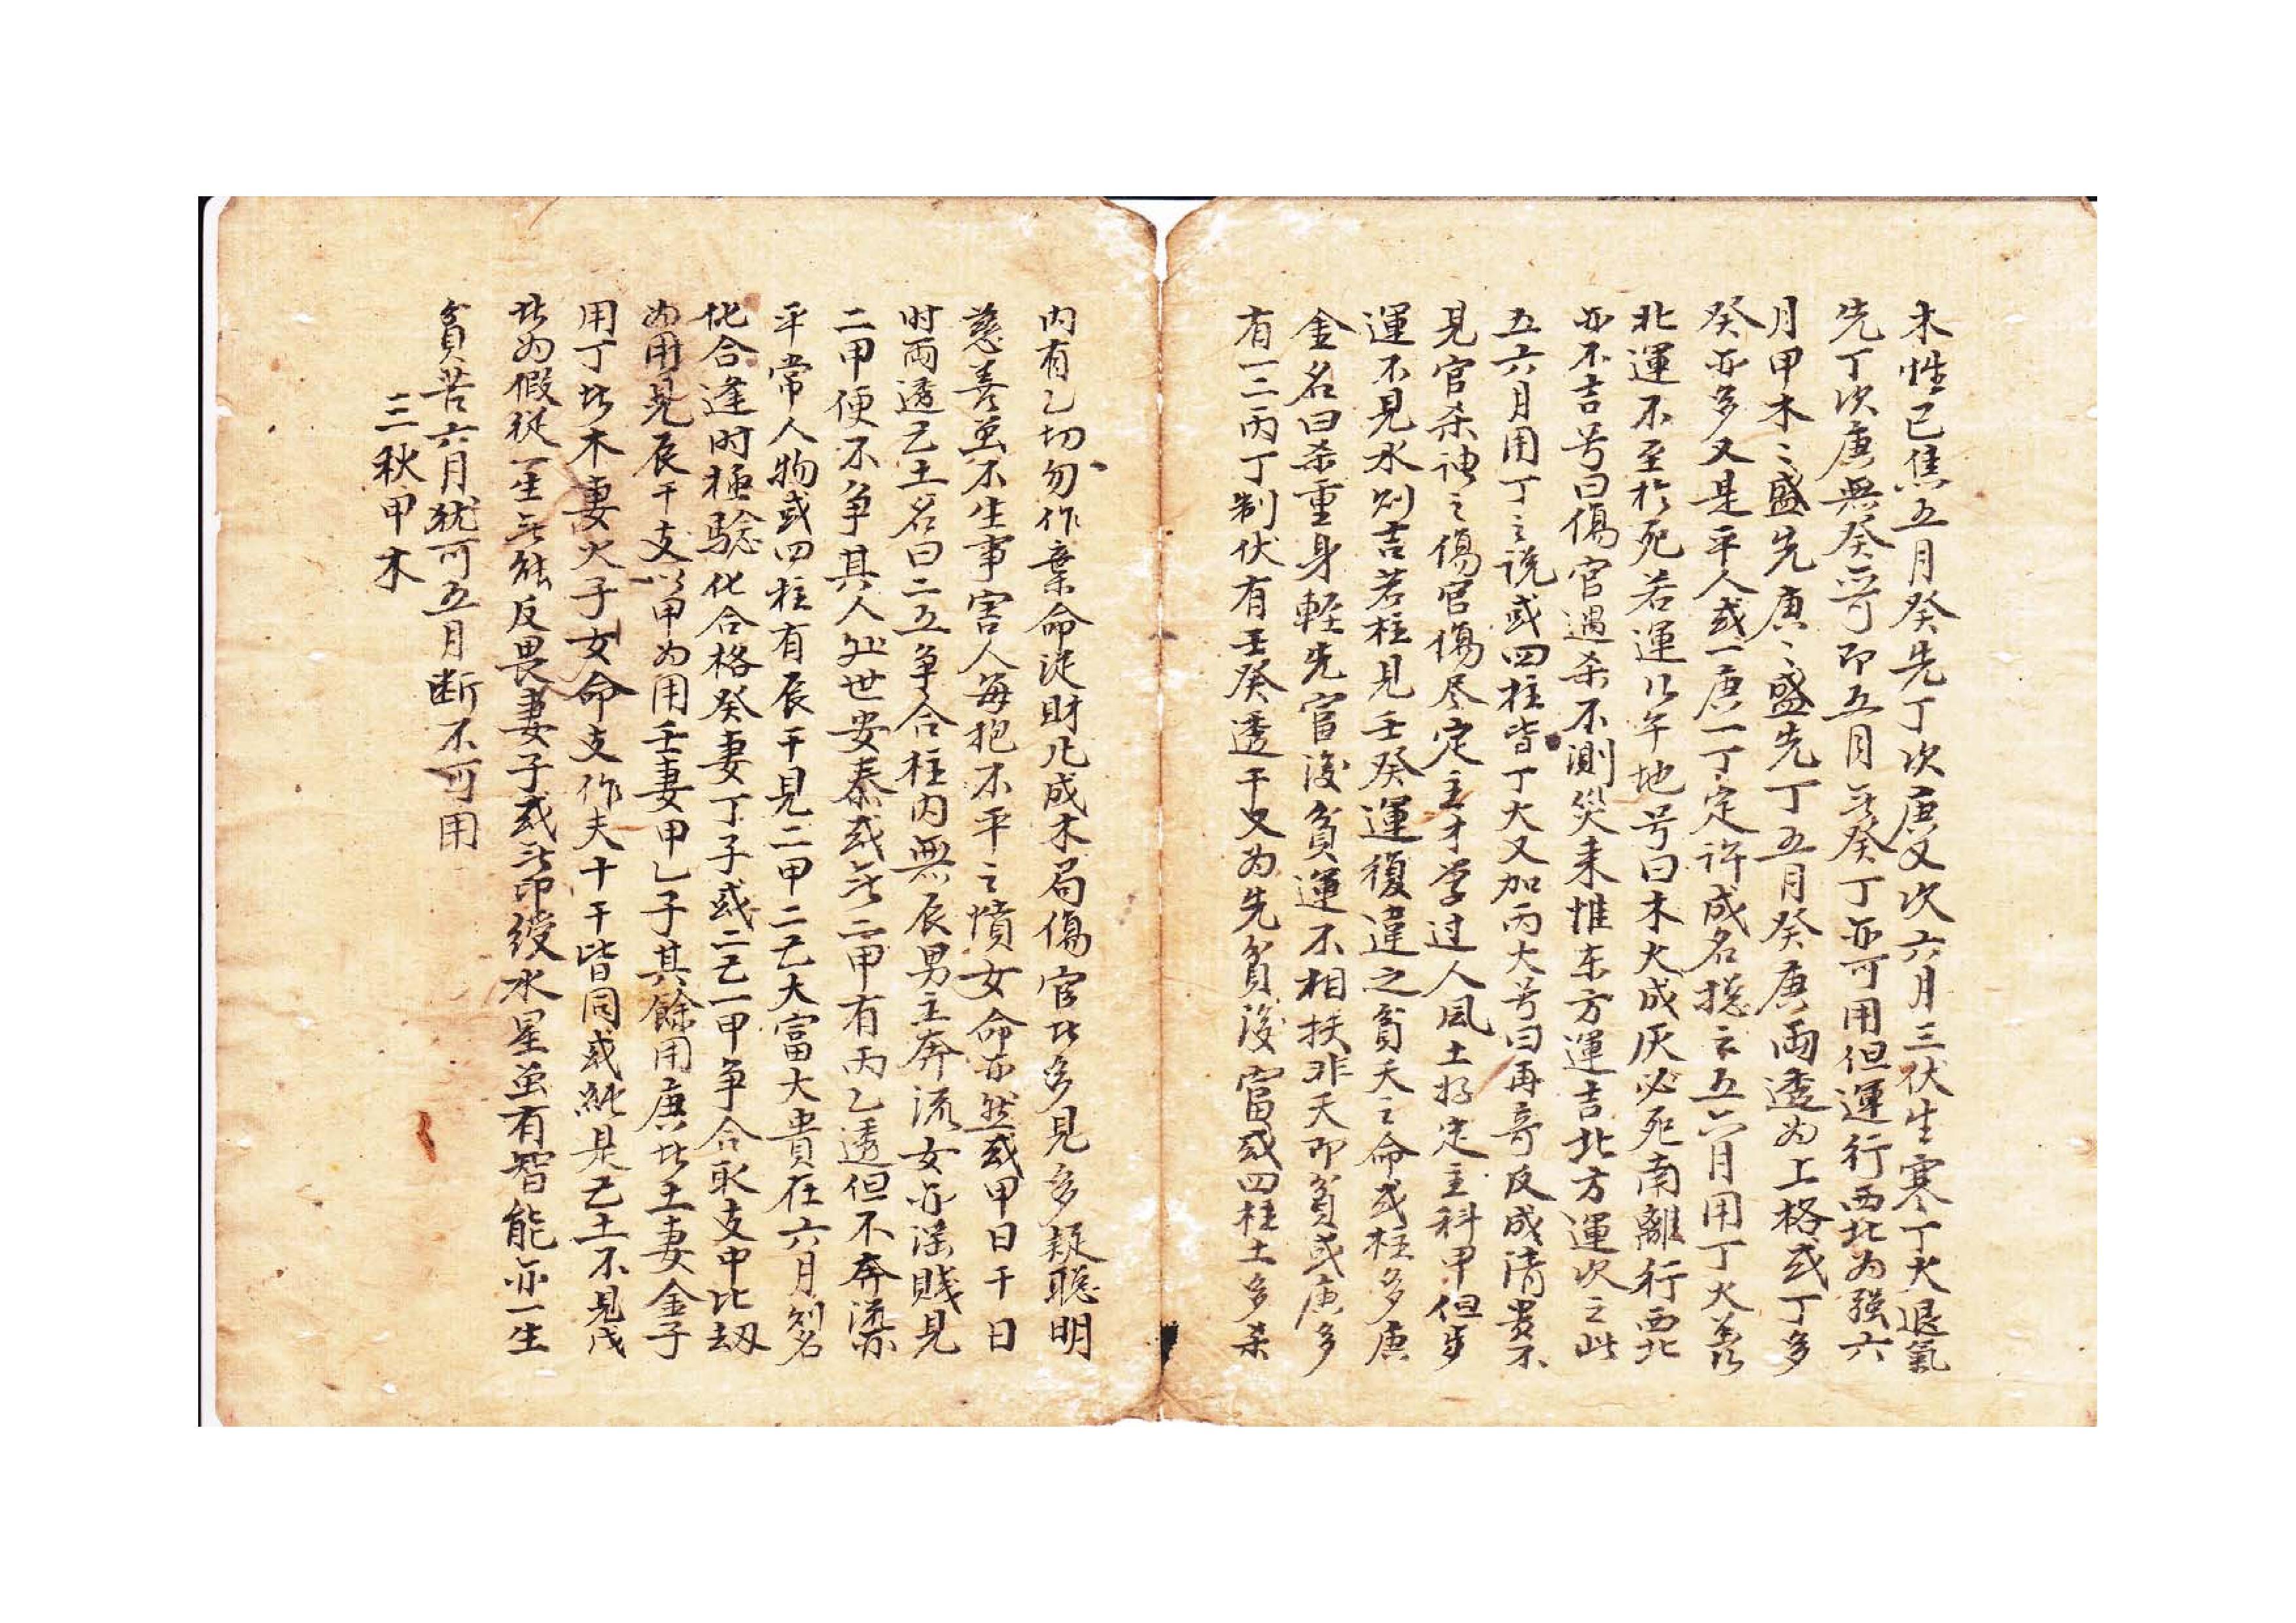 木性已焦五月癸先丁次庚又次六月三伏生寒丁火退氣
先丁次庚無癸亦可即五月无癸丁亦可用但運行西北為强六
月甲木〻盛先庚〻盛先丁五月癸庚兩透为上格或丁多
癸亦多又是平人或一庚一丁定許成名揔云五六月用丁火善行
北運不至於死若運行午地号曰木火成灰必死南離行西北
亦不吉号曰傷官遇杀不測災来惟东方運吉北方運次之此
五六月用丁之説或四柱皆丁火又加丙火号曰再奇反成清貴不
見官杀謂之傷官傷尽定主才学过人风土招定主科甲但歩
運不見水则吉若柱見壬癸運復違之貧夭之命或柱多庚
金名曰杀重身軽先富後貧運不相扶非夭即貧或庚多
有一二丙丁制伏有壬癸透干又为先貧後富或四柱土多杀
内有乙切勿作棄命從財凡成木局傷官此多見多疑聪明
慈善虽不生事害人每抱不平之憤女命亦然或甲日干日
时兩透己土名曰二土争合柱内無辰男主奔流女亦滛賤見
二甲便不争其人処世安泰或无二甲有丙乙透但不奔流亦
平常人物或四柱有辰干見二甲二己大富大貴在六月则名
化合逢时極驗化合格癸妻丁子或二己一甲争合取支中比刼
为用見辰干支以甲为用壬妻甲乙子其餘用庚此土妻金子
用丁此木妻火子女命支作夫十干皆同或純是己土不見戊
此为假從一生无能反畏妻子或无印綬水星虽有智能亦一生
貧苦六月犹可五月断不可用
三秋甲木